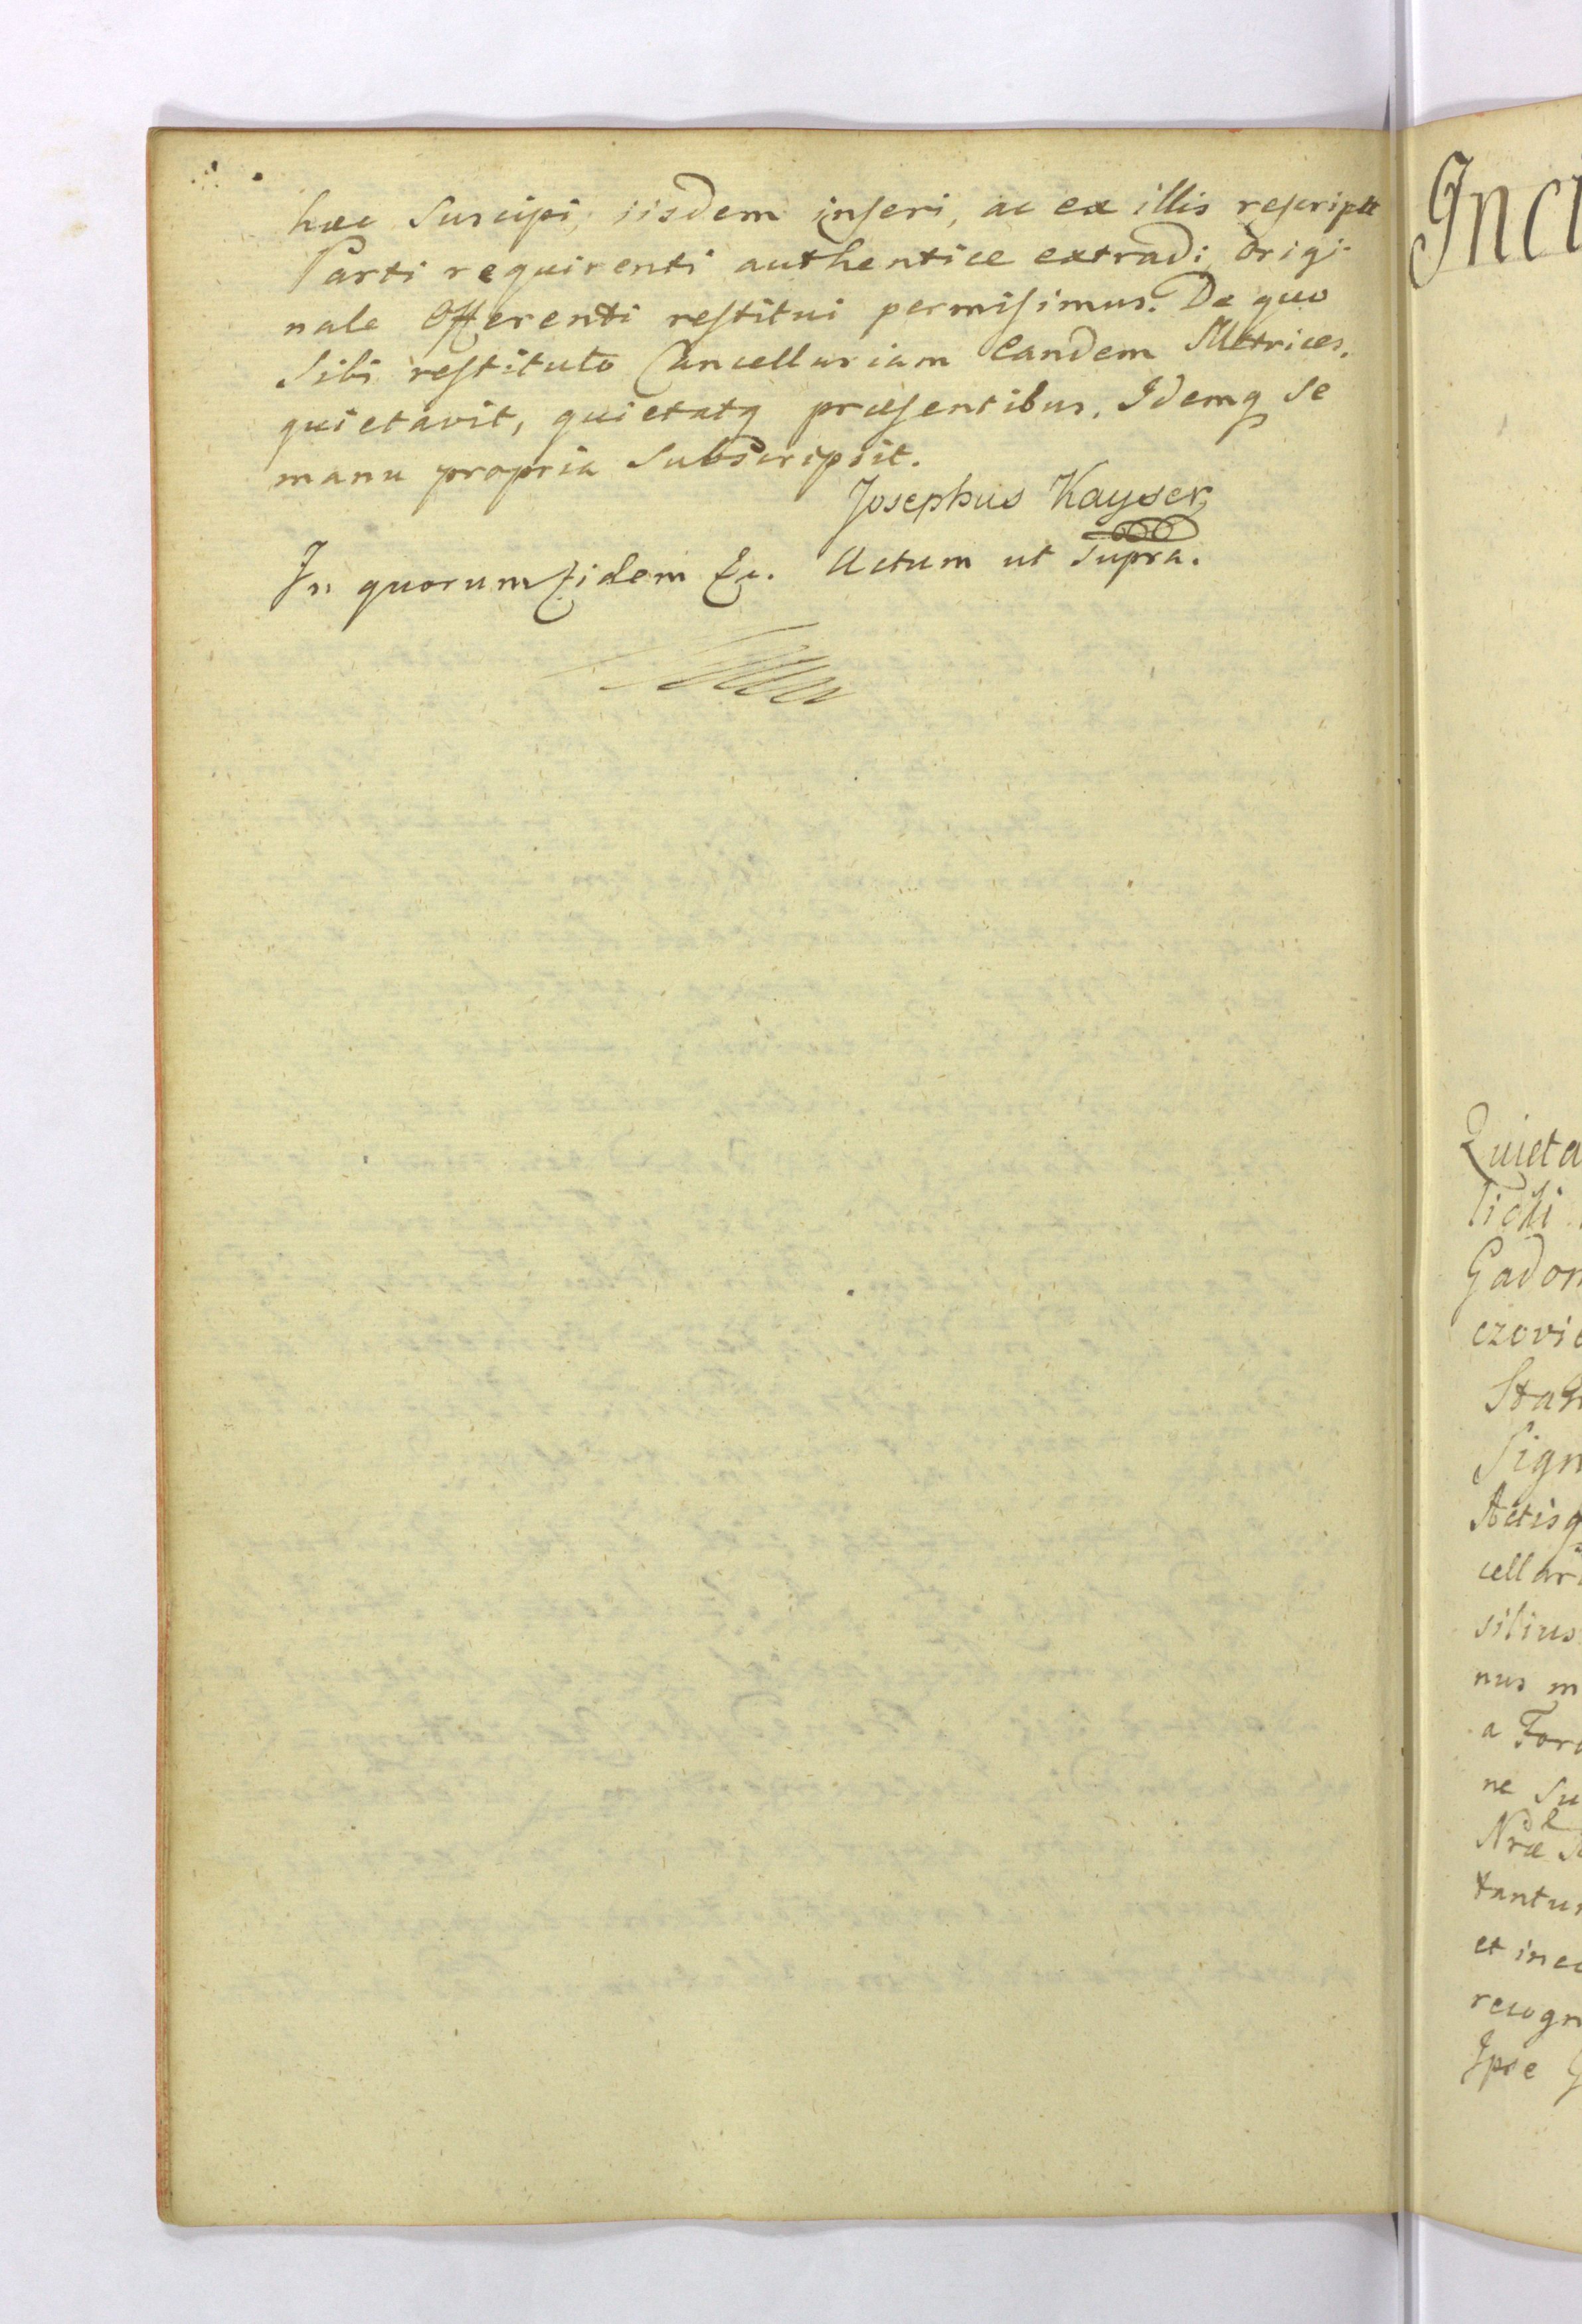 hæc Suscipi, iisdem inseri, ac ex illis rescripta
Parti requirenti authentice extradi, Origi-
nale Offerenti restitui permisimus. De quo
Sibi restituto Cancellariam Eandem Metrices.
quietavit, quietatq præsentibus. Idemq Se
manu propria Subscripsit.
Josephus Kayser,
In quorum fidem &c. Actum ut Supra.
Inci
Quieta
Gadon
czovic
Stan
Sign
Actisq
cellari
silius
nus m
a Foro
ne Su
Nræ
tantu
et in
recogn
Ipse